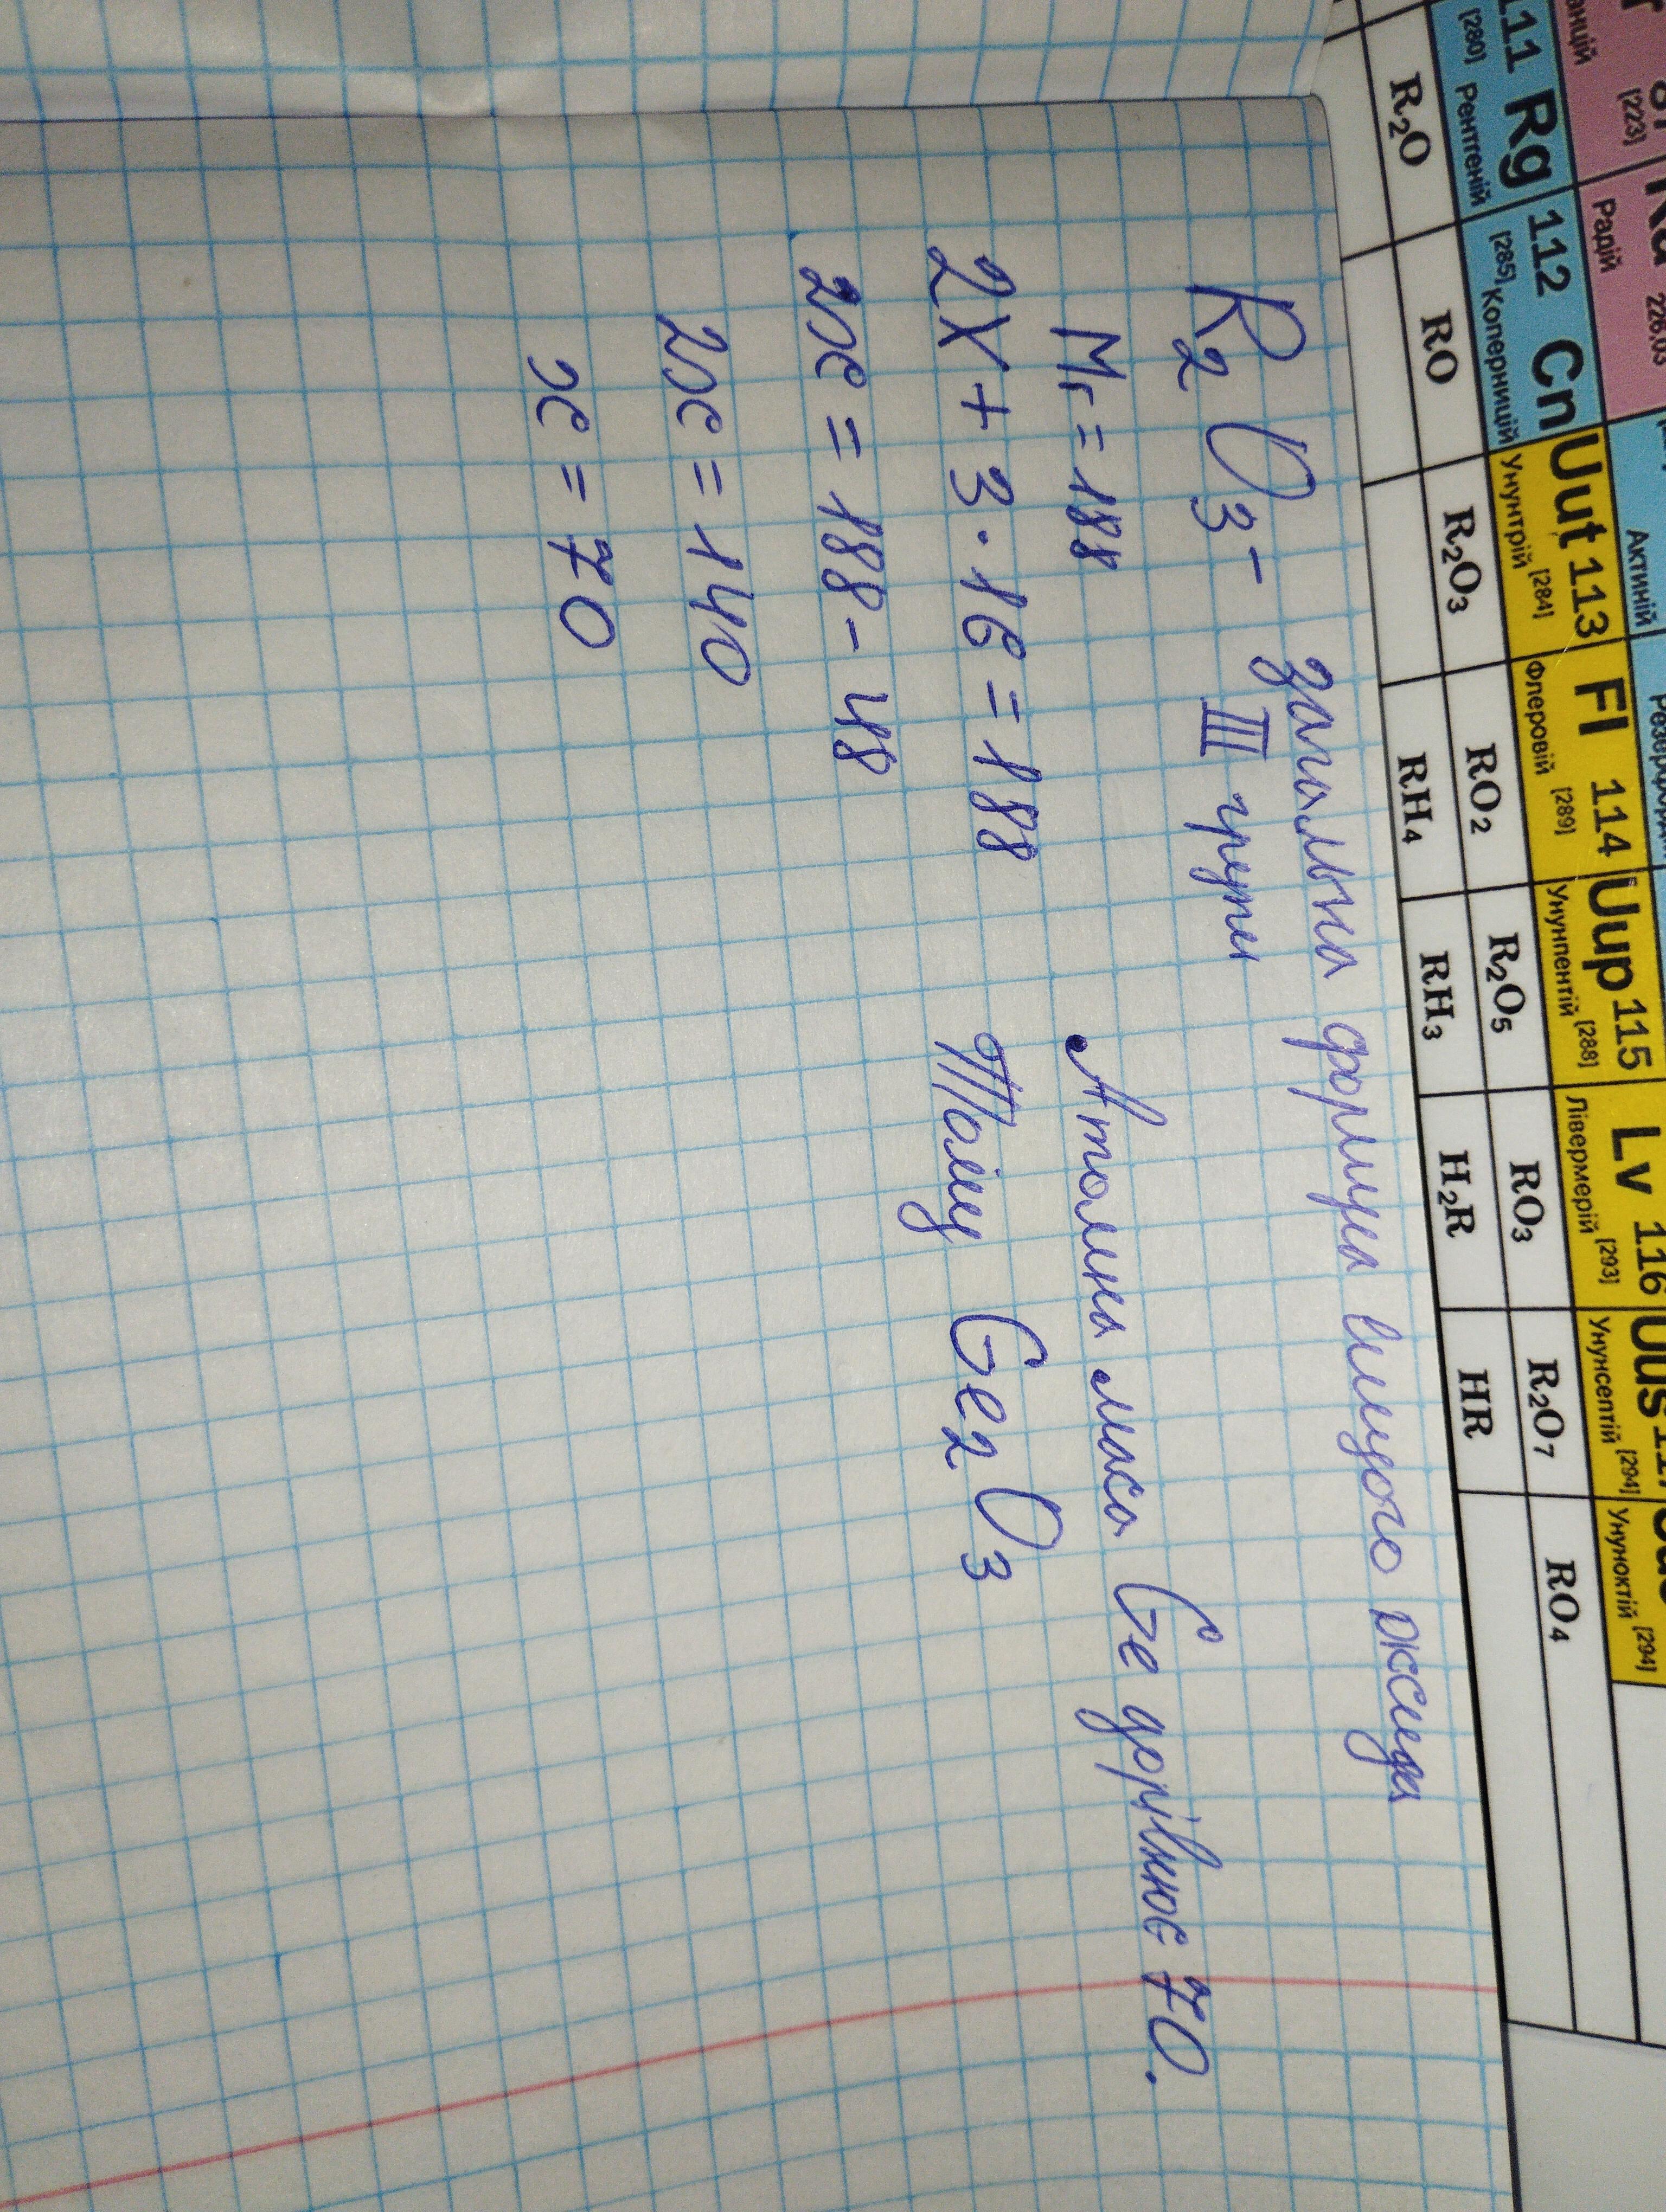 анцій [223] Радій 226,03 Актиній
111 Rg 112 Cn Uut 113 Fl 114 Uup 115 Lv 116 Uus
[280] Рентгеній [285] Коперницій Унунтрій [284] Флеровій [289] Унунпентій [288] Лівермерій [293] Унунсептій [294] Унуноктій [294]
R₂O RO R₂O₃ RO₂ R₂O₅ RO₃ R₂O₇ RO₄
RH₄ RH₃ H₂R HR
R₂O₃ - загальна формула вищого оксида
III групи
Mr = 188
Атомна маса Ge дорівнює 70.
2X + 3 · 16 = 188
Тому Ge₂O₃
2x = 188 - 48
2x = 140
x = 70